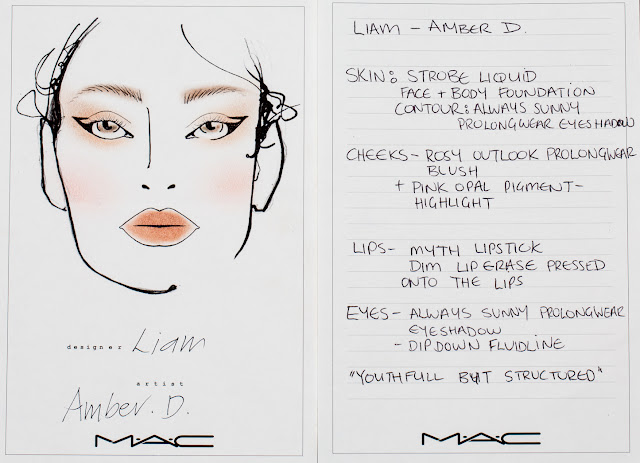 designer Liam
artist
Amber. D.
MAC
LIAM - AMBER D.
SKIN: STROBE LIQUID
FACE + BODY FOUNDATION
CONTOUR: ALWAYS SUNNY
PROLONGWEAR EYESHADOW
CHEEKS - ROSY OUTLOOK PROLONGWEAR
BLUSH
+ PINK OPAL PIGMENT -
HIGHLIGHT
LIPS - MYTH LIPSTICK
DIM LIP ERASE PRESSED
ONTO THE LIPS
EYES - ALWAYS SUNNY PROLONGWEAR
EYESHADOW
- DIPDOWN FLUIDLINE
"YOUTHFULL BUT STRUCTURED"
MAC